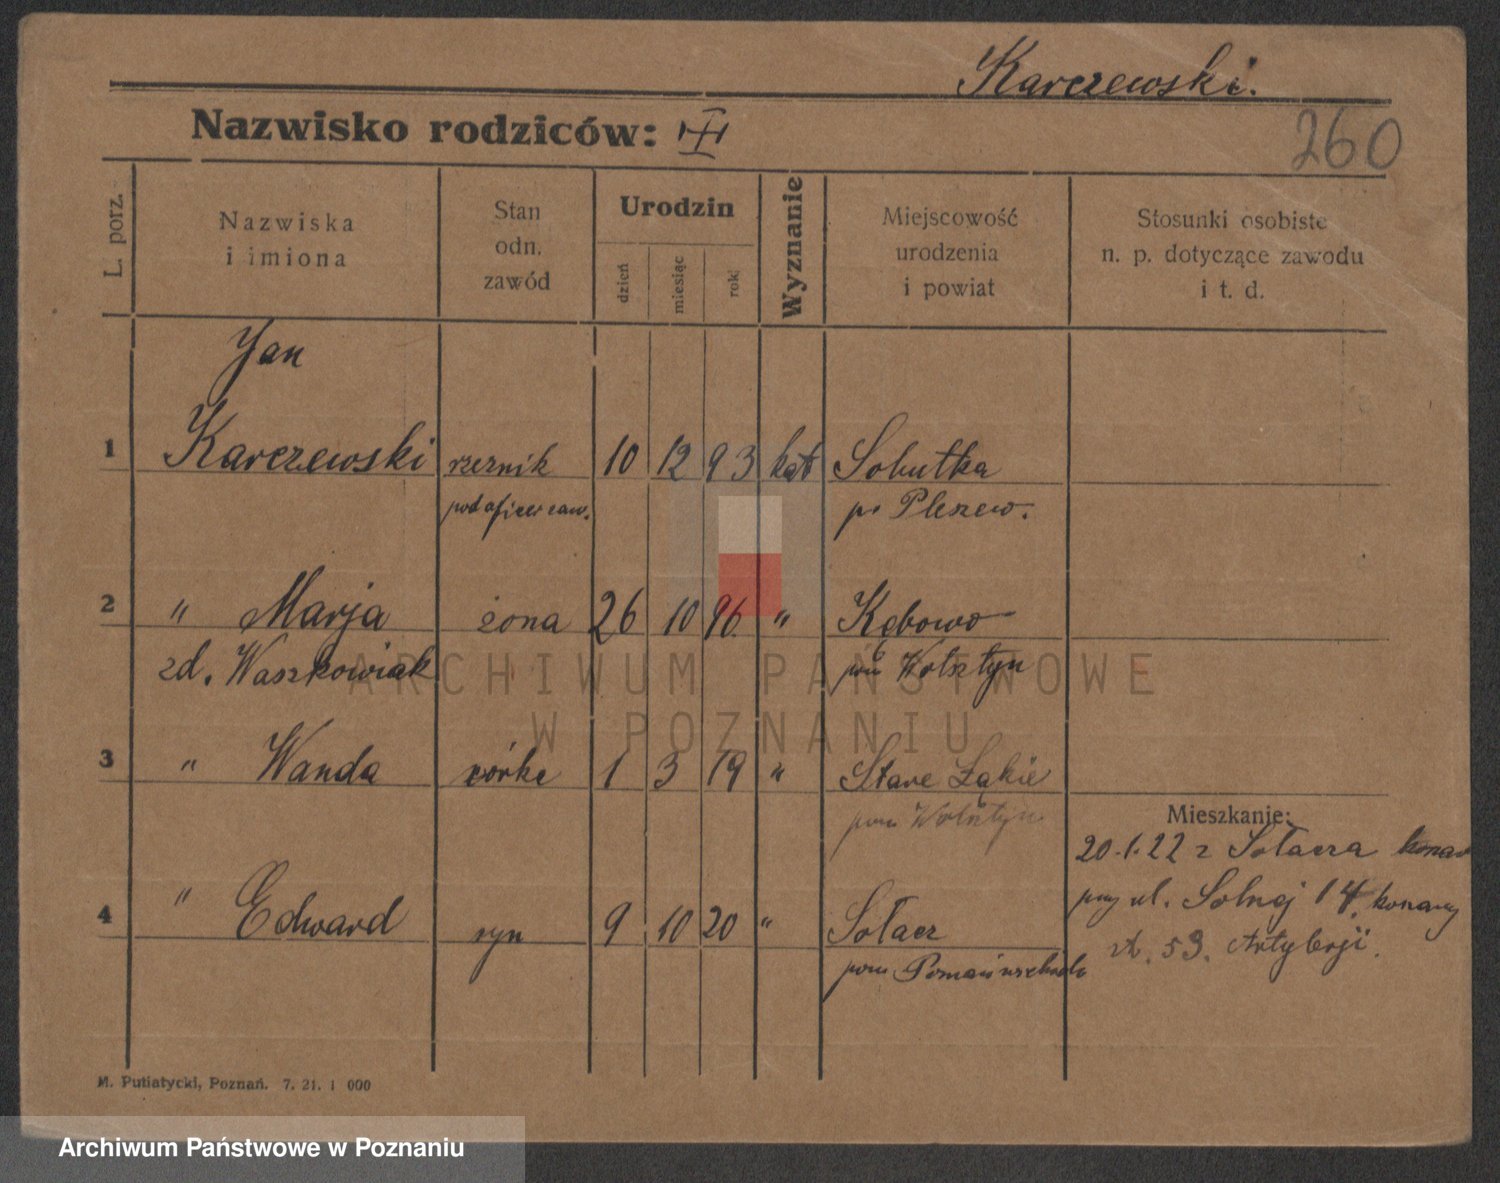 Karczewski.
Nazwisko rodziców: III
260
L. porz.
Nazwiska
i imiona
Stan
odn.
zawód
Urodzin
dzień
miesiąc
rok
Wyznanie
Miejscowość
urodzenia
i powiat
Stosunki osobiste
n. p. dotyczące zawodu
i t. d.
Jan
1 Karczewski rzeźnik 10 12 93 kat Sobutka
podoficer zaw. p. Pleszew.
2 " Marja żona 26 10 96 " Kębowo
zd. Waszkowiak pow Wolsztyn
3 " Wanda córka 1 3 19 " Stare Łąkie
pow Wolsztyn
Mieszkanie:
20.1.22 z Sołacza
4 " Edward syn 9 10 20 " Sołacz
przy ul. Solnej 14.
53. Artylerji.
pow Poznań wschode
M. Putiatycki, Poznań. 7. 21. 1 000
ARCHIWUM PAŃSTWOWE
W POZNANIU
Archiwum Państwowe w Poznaniu